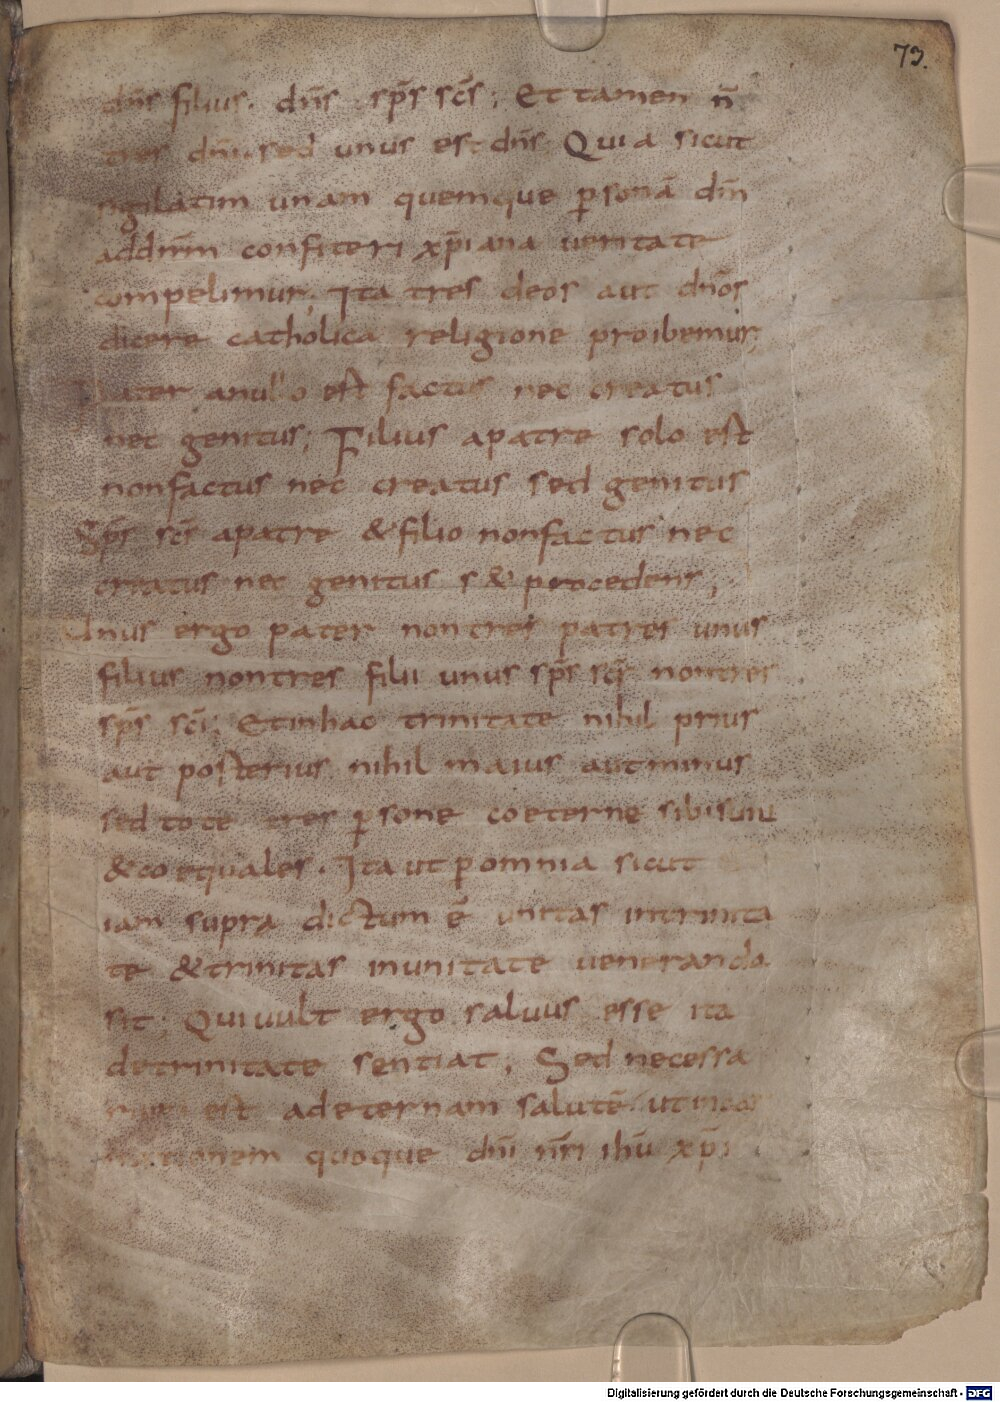 73.
dn̄s filius. dn̄s sp̄s sc̄s; Et tamen n̄
tres dn̄i sed unus est dn̄s; Quia sicut
sigilatim unam quemque p̄sonā dm̄
addnm̄ confiteri xp̄iana ueritate
compelimur; Ita tres deos aut dnōs
dicere catholica religione proibemur;
Pater anullo est factus nec creatus
nec genitus; Filius apatre solo est
nonfactus nec creatus sed genitus
Sp̄s sc̄s apatre & filio nonfactus nec
creatus nec genitus s& procedens;
Unus ergo pater non tres patres unus
filius nontres filii unus sp̄s sc̄s nontres
sp̄s sc̄i; Etinhac trinitate nihil prius
aut posterius nihil maius autminus
sed tote tres p̄sone coeterne sibisunt
& coequales. Ita ut p̄omnia sicut
iam supra dictum ē unitas intrinita
te & trinitas inunitate uenerando
sit; Quiuult ergo saluus esse ita
detrinitate sentiat; Sed necessa
est adeternam salutē. ut
quoque dn̄i nr̄i ihū xp̄i
Digitalisierung gefördert durch die Deutsche Forschungsgemeinschaft - DFG